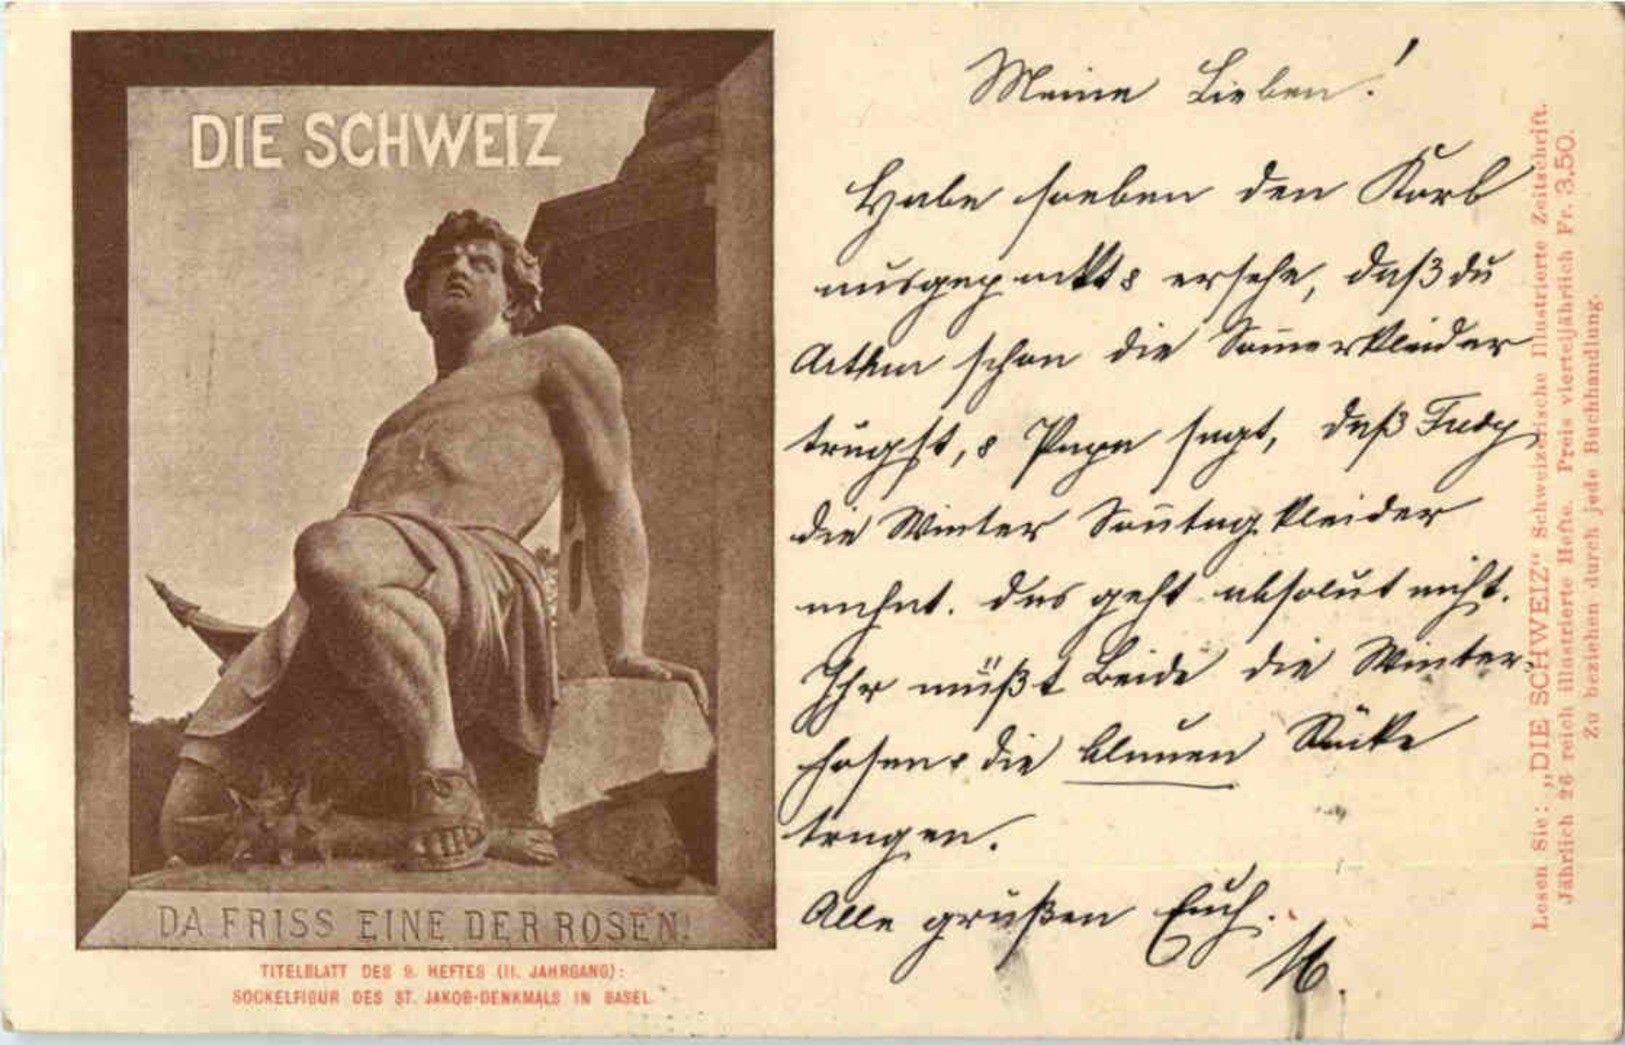 DIE SCHWEIZ
DA FRISS EINE DER ROSEN!
TITELBLATT DES 9. HEFTES (II. JAHRGANG):
SOCKELFIGUR DES ST. JAKOB-DENKMALS IN BASEL
Meine Lieben!
Habe soeben den Korb
ausgepackt & ersehe, daß du
Arthur schon die Som̅erkleider
trugst, & Papa sagt, daß
die Winter Son̅tagkleider
nehmt. das geht absolut nicht.
Ihr müßt beide die Winter-
hosen & die blauen Röcke
tragen.
Alle grüßen Euch.
M.
Lesen Sie: „DIE SCHWEIZ“ Schweizerische Illustrierte Zeitschrift.
Jährlich 26 reich illustrierte Hefte. Preis vierteljährlich Fr. 3.50.
Zu beziehen durch jede Buchhandlung.